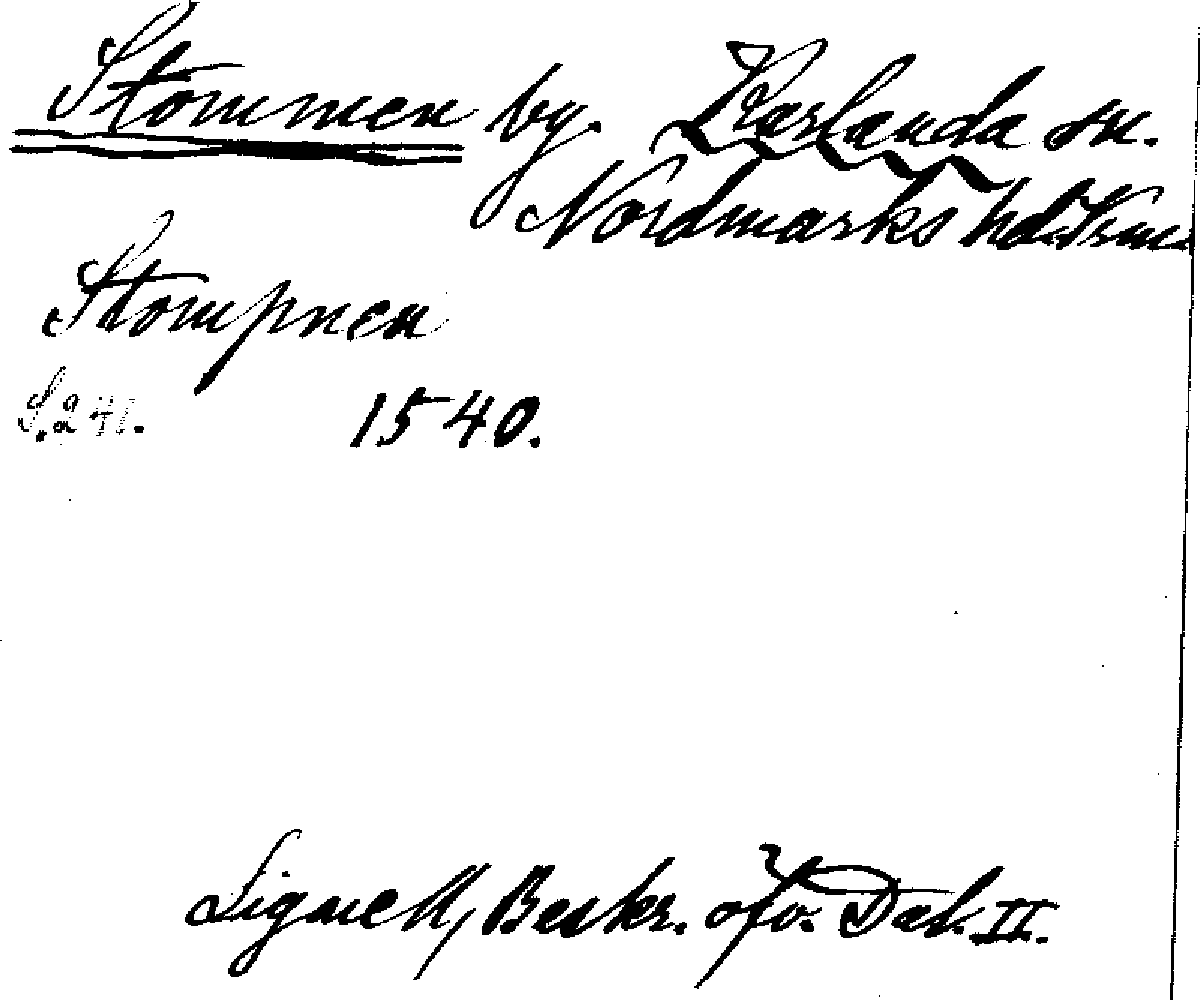 Stommen by. Karlanda sn.
Nordmarks hd. Vrml.
Stompnen
S. 241. 1540.
Lignell, Beskr. öfv. Dal. II.